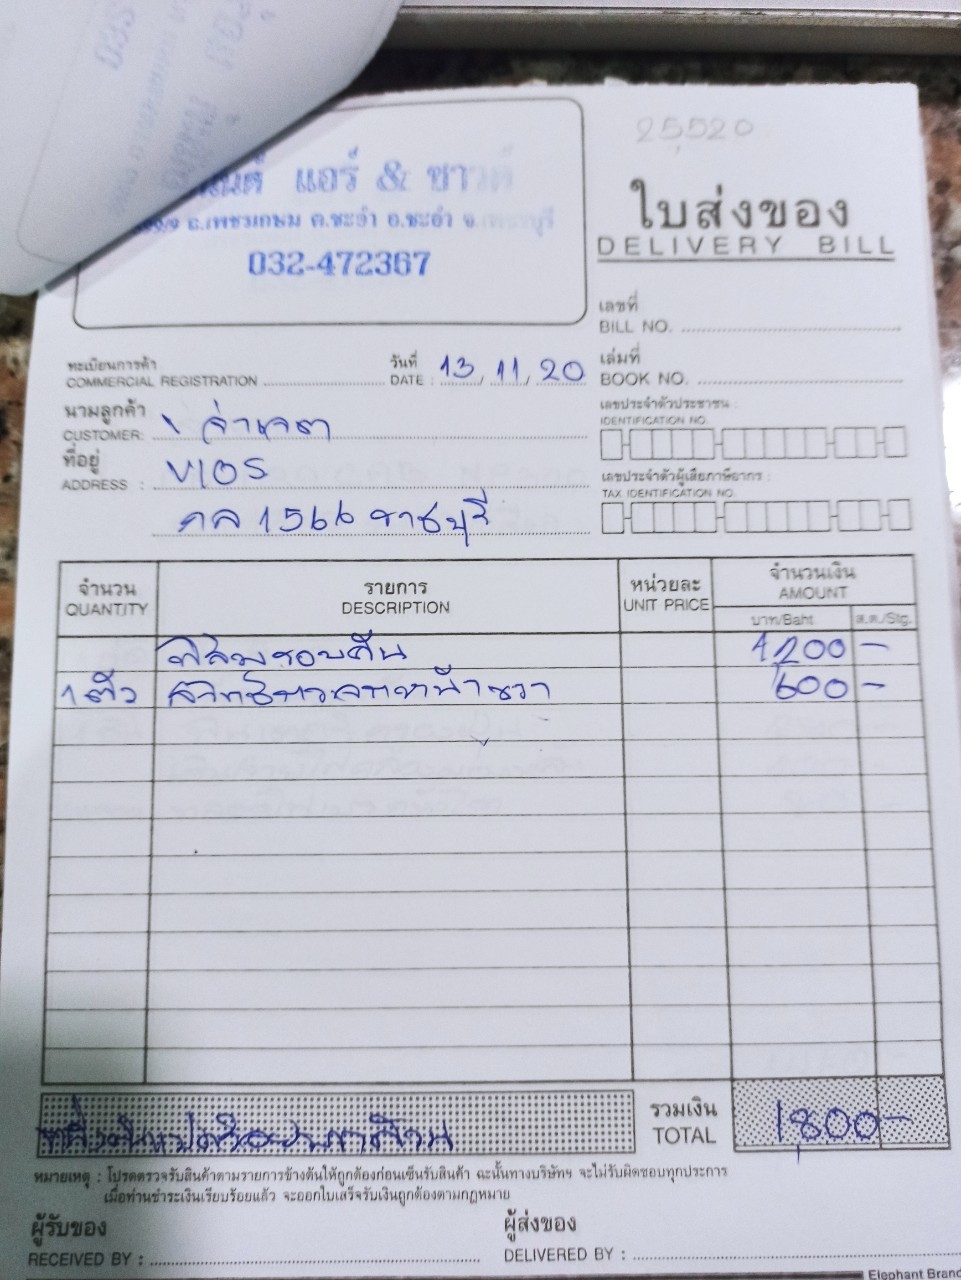 25,520
แอร์ & ซาวด์
ถ.เพชรเกษม ต.ชะอำ อ.ชะอำ จ.เพชรบุรี
032-472367
ใบส่งของ
DELIVERY BILL
เลขที่
BILL NO.
ทะเบียนการค้า
COMMERCIAL REGISTRATION
วันที่
DATE : 13/11/20
เล่มที่
BOOK NO.
นามลูกค้า
CUSTOMER:
เลขประจำตัวประชาชน :
IDENTIFICATION NO.
ที่อยู่
ADDRESS : VIOS
เลขประจำตัวผู้เสียภาษีอากร :
TAX IDENTIFICATION NO.
กล 1566 ราชบุรี
จำนวน รายการ หน่วยละ จำนวนเงิน
QUANTITY DESCRIPTION UNIT PRICE AMOUNT
บาท/Baht ส.ต./Stg.
ฟิล์มรอบคัน 1,200 -
1 ตัว 600 -
รวมเงิน
TOTAL 1,800 -
หมายเหตุ : โปรดตรวจรับสินค้าตามรายการข้างต้นให้ถูกต้องก่อนเซ็นรับสินค้า ฉะนั้นทางบริษัทฯ จะไม่รับผิดชอบทุกประการ
เมื่อท่านชำระเงินเรียบร้อยแล้ว จะออกใบเสร็จรับเงินถูกต้องตามกฎหมาย
ผู้รับของ ผู้ส่งของ
RECEIVED BY : DELIVERED BY :
Elephant Brand